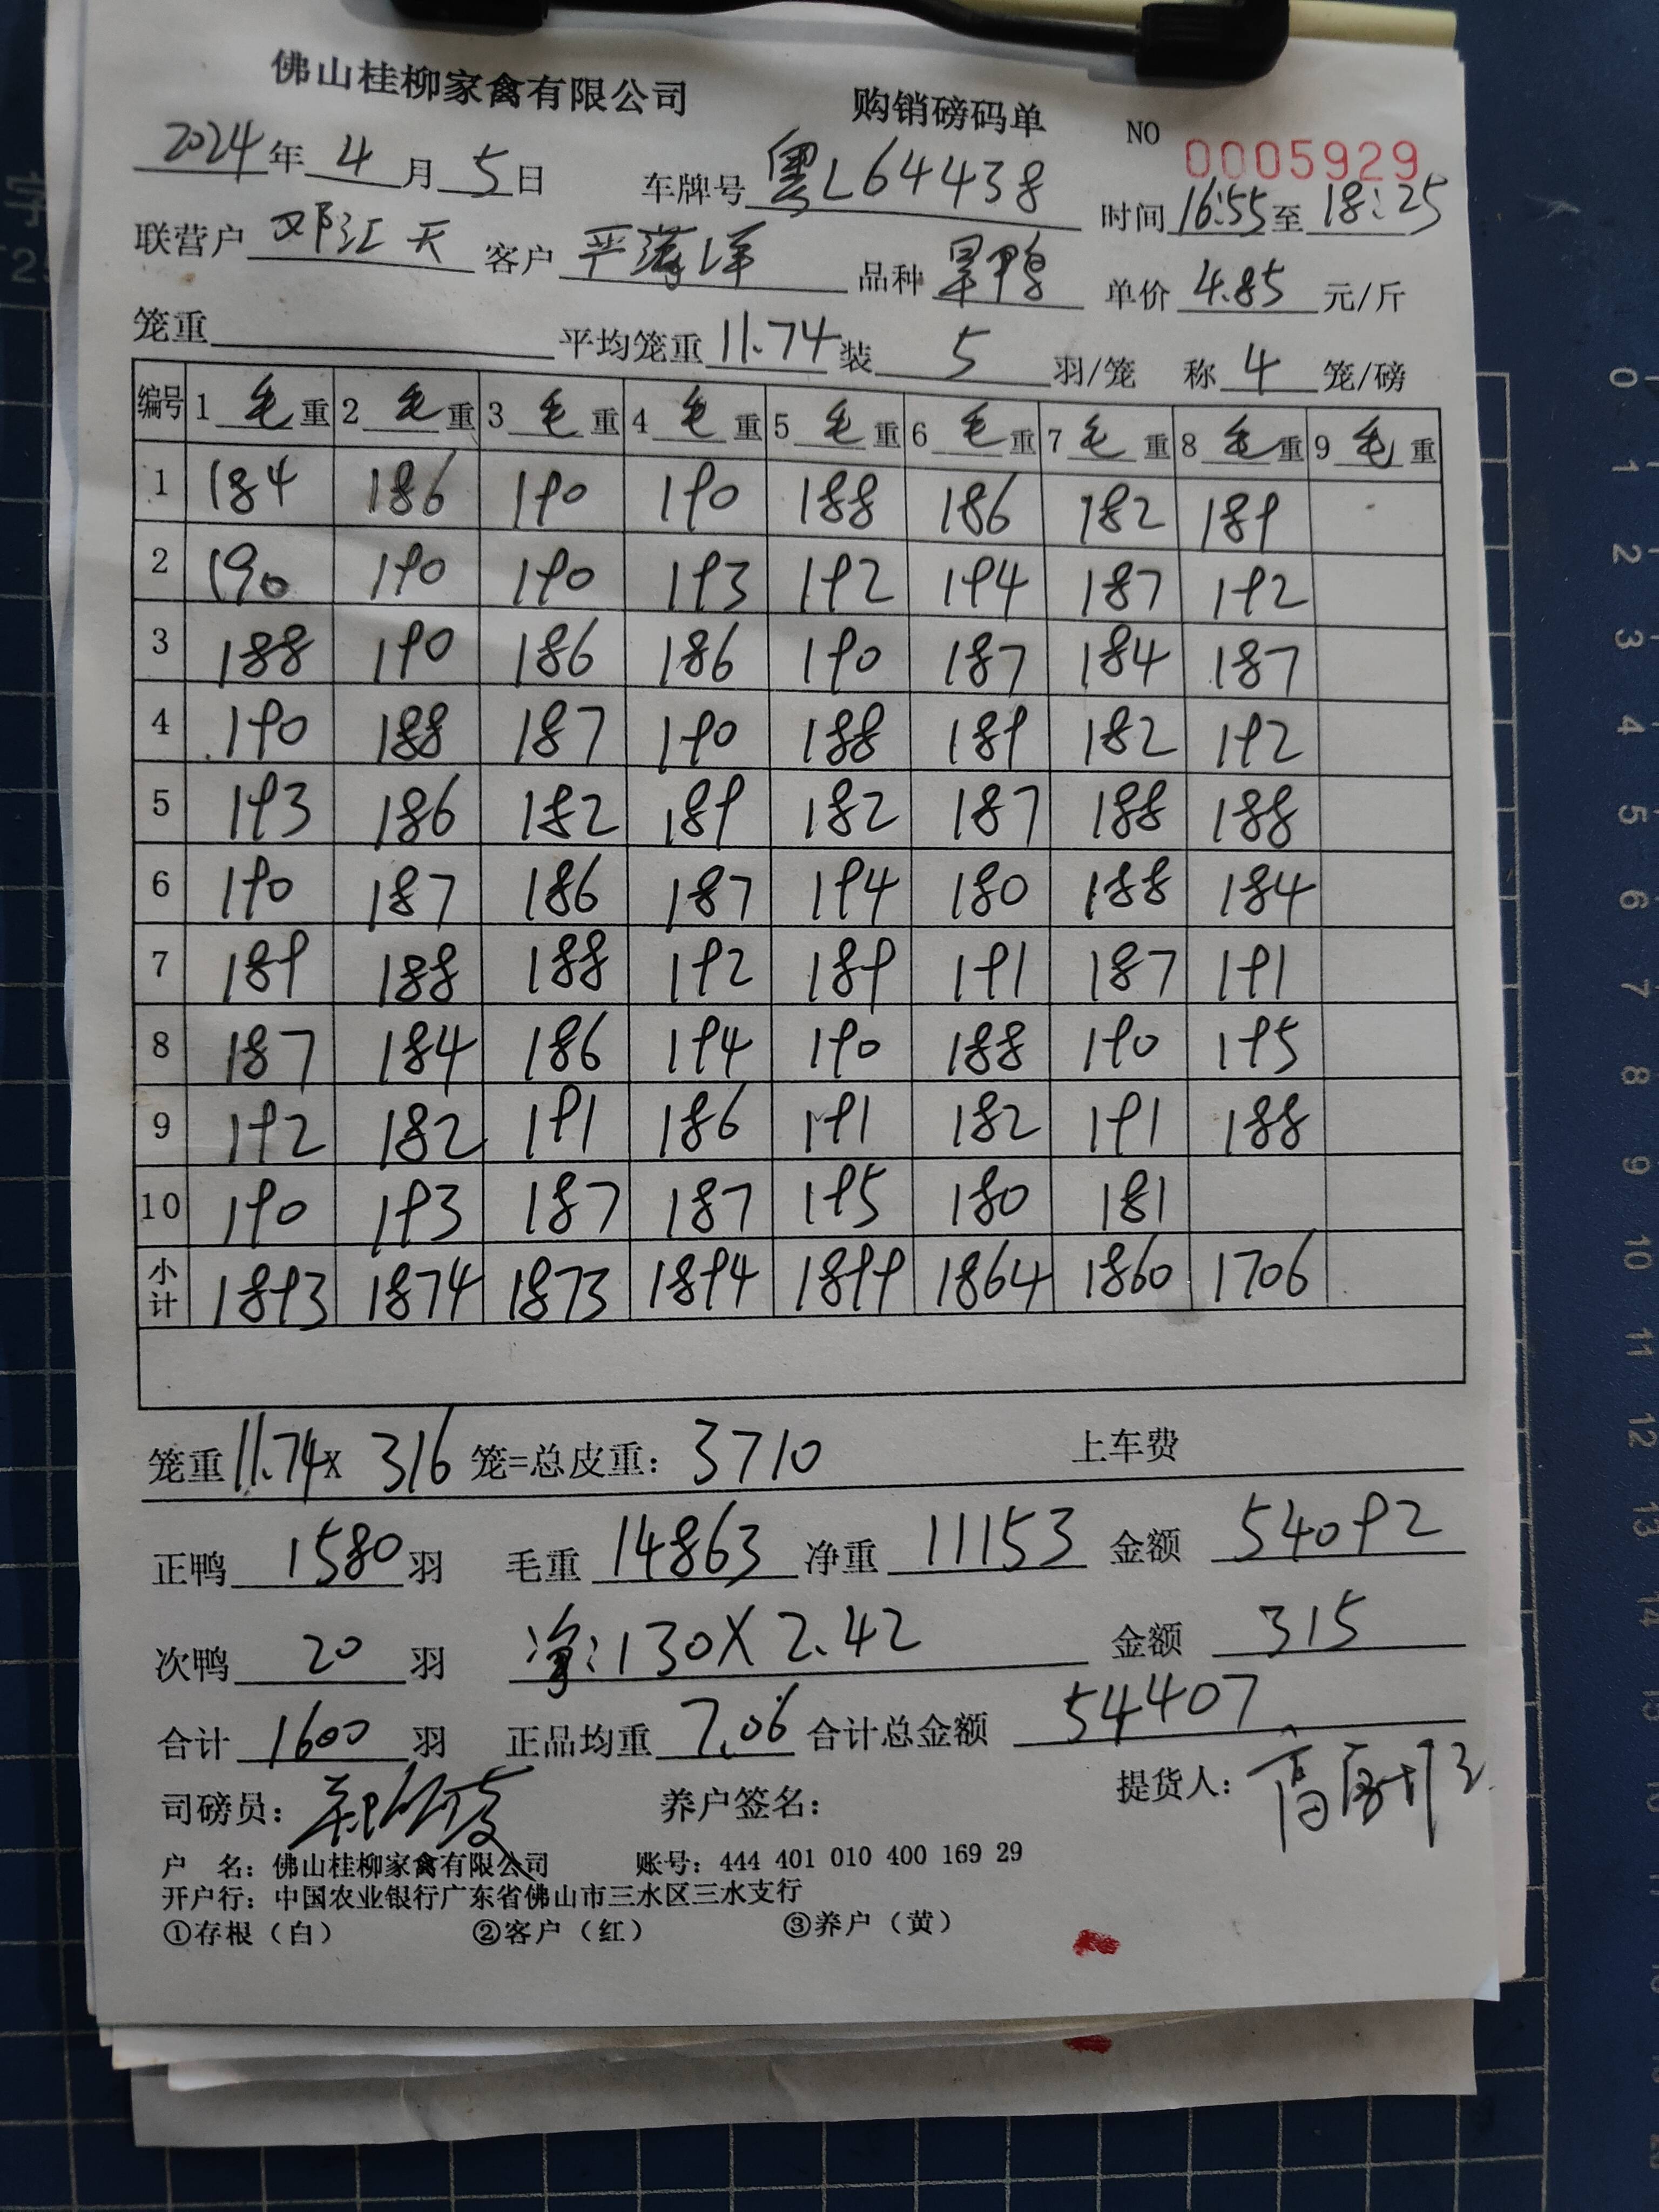 佛山桂柳家禽有限公司 购销磅码单 NO 0005929
2024年4月5日 车牌号 粤L64438 时间 16:55至18:25
联营户 邓江天 客户 严 洋 品种 旱鸭 单价 4.85 元/斤
笼重 平均笼重 11.74 装 5 羽/笼 称 4 笼/磅
编号 1 毛 重 2 毛 重 3 毛 重 4 毛 重 5 毛 重 6 毛 重 7 毛 重 8 毛 重 9 毛 重
1 184 186 190 190 188 186 182 189
2 190 190 190 193 192 194 187 192
3 188 190 186 186 190 187 184 187
4 190 188 187 190 188 189 182 192
5 193 186 182 189 182 187 188 188
6 190 187 186 187 194 180 188 184
7 189 188 188 192 189 191 187 191
8 187 184 186 194 190 188 190 195
9 192 182 191 186 191 182 191 188
10 190 193 187 187 195 180 181
小计 1893 1874 1873 1894 1899 1864 1860 1706
笼重 11.74 x 316 笼=总皮重: 3710 上车费
正鸭 1580 羽 毛重 14863 净重 11153 金额 54092
次鸭 20 羽 净:130X2.42 金额 315
合计 1600 羽 正品均重 7.06 合计总金额 54407
司磅员: 养户签名: 提货人:
户 名: 佛山桂柳家禽有限公司 账号: 444 401 010 400 169 29
开户行: 中国农业银行广东省佛山市三水区三水支行
①存根（白） ②客户（红） ③养户（黄）
0
1
2
3
4
5
6
7
8
9
10
11
12
13
14